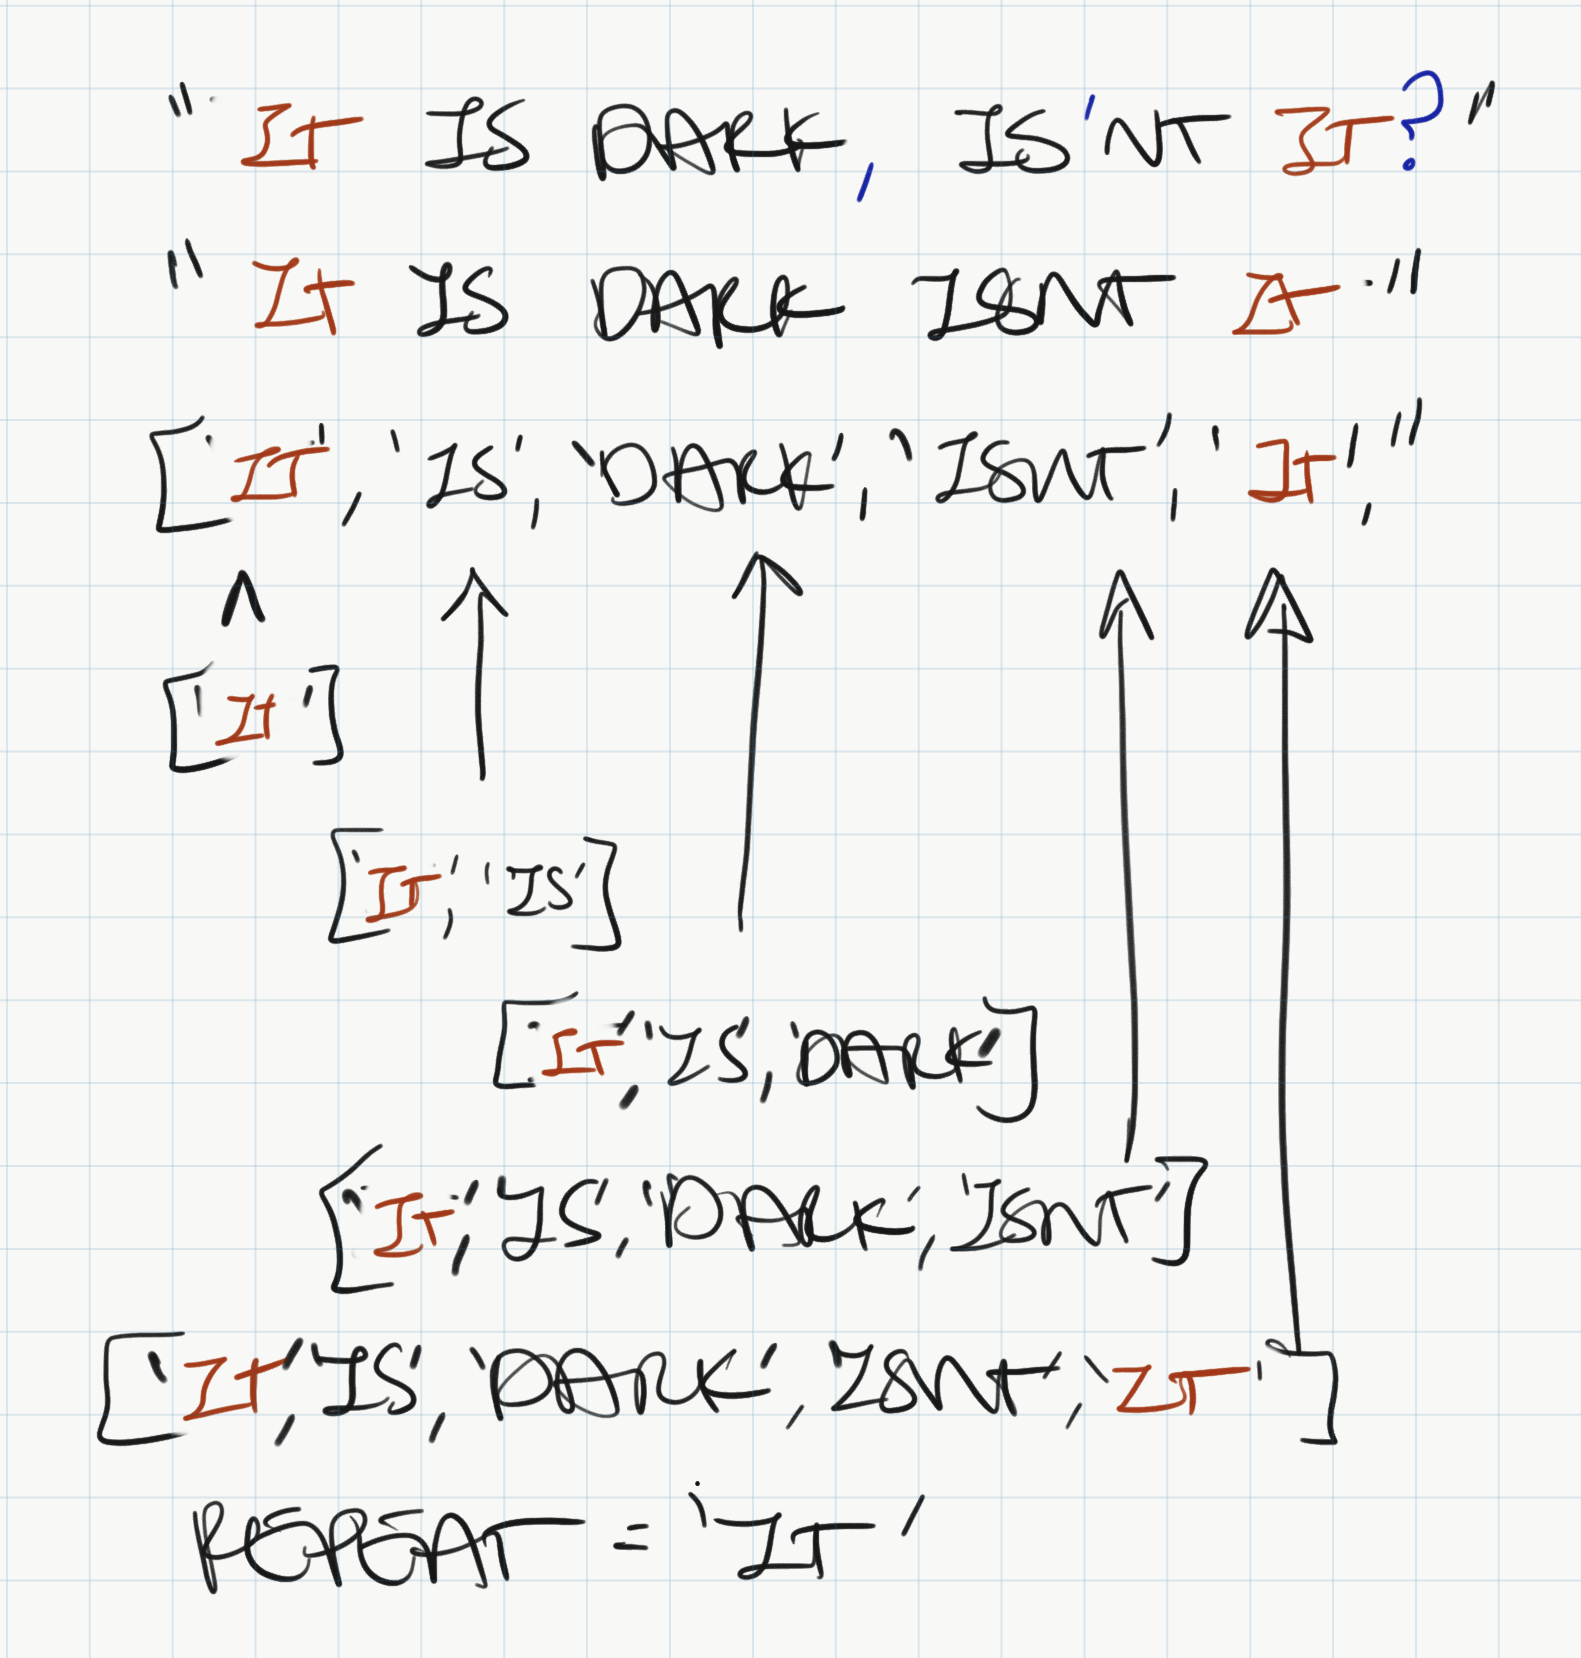 " It IS DARK, IS'NT IT? "
" It IS DARK ISNT It "
['IT', 'IS', 'DARK', 'ISNT', 'It', "
['It']
['IT', 'IS']
['IT', 'IS', 'DARK']
['IT', 'IS', 'DARK', 'ISNT']
['It', 'IS', 'DARK', 'ISNT', 'IT']
REPEAT = 'IT'